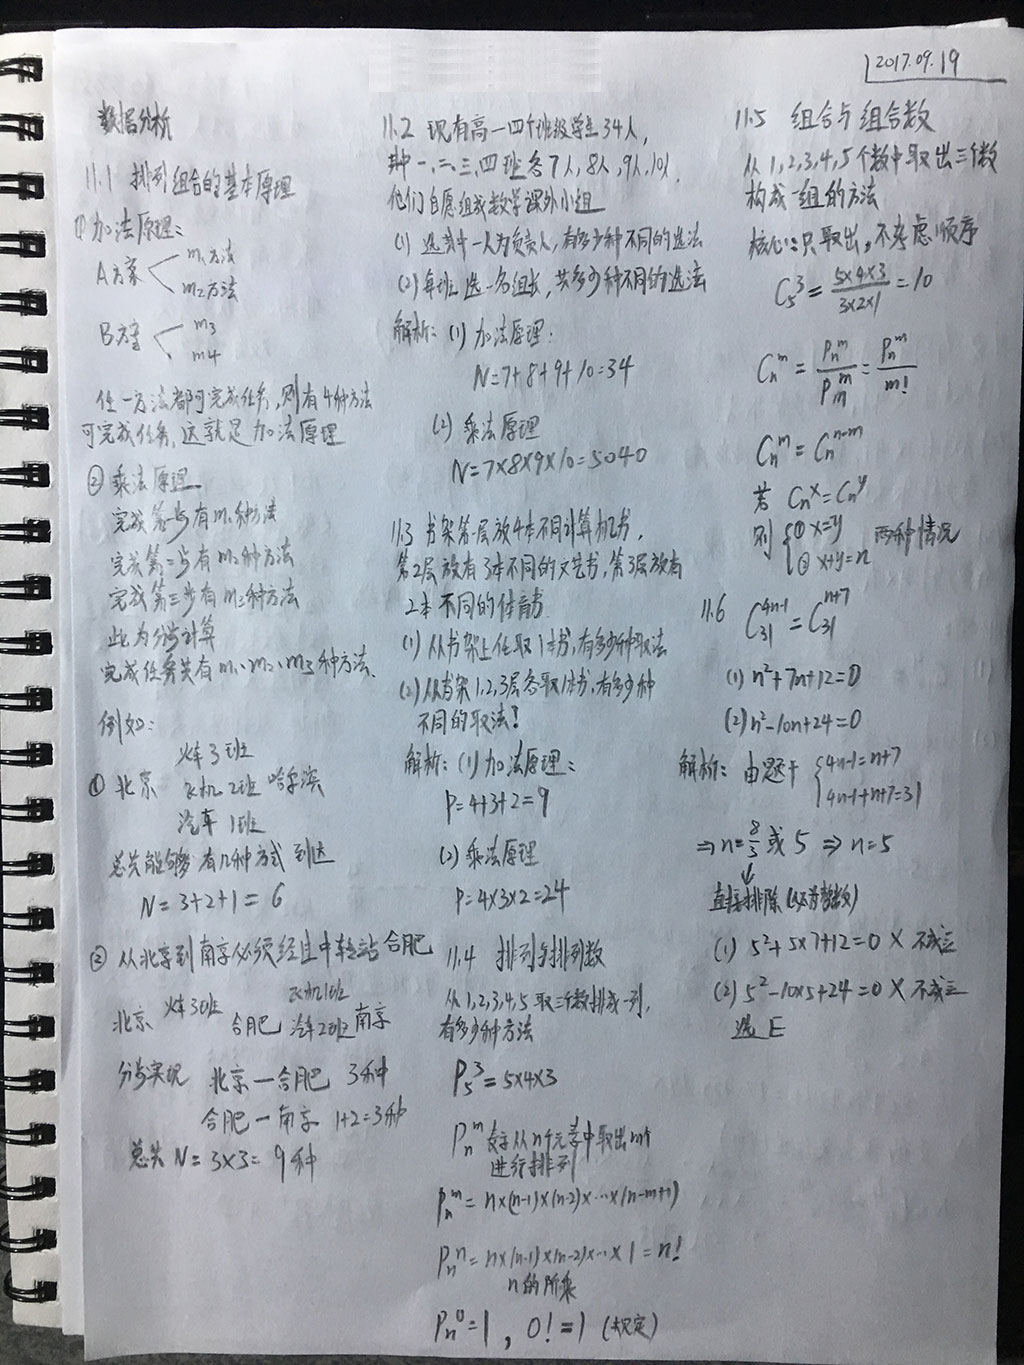 2017.09.19
数据分析
11.1 排列组合的基本原理
① 加法原理:
A方案 m1方法
m2方法
B方案 m3
m4
任一方法都可完成任务,则有4种方法
可完成任务,这就是加法原理
② 乘法原理
完成第一步有m1种方法
完成第二步有m2种方法
完成第三步有m3种方法
此为分步计算
完成任务共有m1·m2·m3种方法.
例如:
火车3班
① 北京 飞机2班 哈尔滨
汽车1班
总共能够有几种方式到达
N=3+2+1=6
② 从北京到南京必须经且中转站合肥
北京 火车3班 合肥 飞机1班 汽车2班 南京
分步实现 北京—合肥 3种
合肥—南京 1+2=3种
总共 N=3×3=9种
11.2 现有高一四个班级学生34人,
其中一、二、三、四班各7人,8人,9人,10人.
他们自愿组成数学课外小组
(1) 选其中一人为负责人,有多少种不同的选法
(2) 每班选一名组长,共多少种不同的选法
解析:(1) 加法原理:
N=7+8+9+10=34
(2) 乘法原理
N=7×8×9×10=5040
11.3 书架第一层放4本不同计算机书,
第2层放有3本不同的文艺书,第3层放有
2本不同的体育书
(1) 从书架上任取1本书,有多少种取法
(2) 从书架1,2,3层各取1本书,有多少种
不同的取法!
解析:(1) 加法原理:
P=4+3+2=9
(2) 乘法原理
P=4×3×2=24
11.4 排列与排列数
从1,2,3,4,5取三个数排成一列,
有多少种方法
P₅³=5×4×3
Pₙᵐ表示从n个元素中取出m个
进行排列
Pₙᵐ=n×(n-1)×(n-2)×…×(n-m+1)
Pₙⁿ=n×(n-1)×(n-2)×…×1=n!
n的所乘
Pₙ⁰=1, 0!=1 (规定)
11.5 组合与组合数
从1,2,3,4,5个数中取出三个数
构成一组的方法
核心:只取出,不考虑顺序
C₅³=5×4×3/3×2×1=10
Cₙᵐ=Pₙᵐ/Pₘᵐ=Pₙᵐ/m!
Cₙᵐ=Cₙⁿ⁻ᵐ
若 Cₙˣ=Cₙʸ
则 {① x=y 两种情况
② x+y=n
11.6 C₃₁⁴ⁿ⁻¹=C₃₁ⁿ⁺⁷
(1) n²+7n+12=0
(2) n²-10n+24=0
解析:由题干 {4n-1=n+7
4n-1+n+7=31
⇒n=8/3或5 ⇒n=5
直接排除(必为整数)
(1) 5²+5×7+12=0 × 不成立
(2) 5²-10×5+24=0 × 不成立
选E